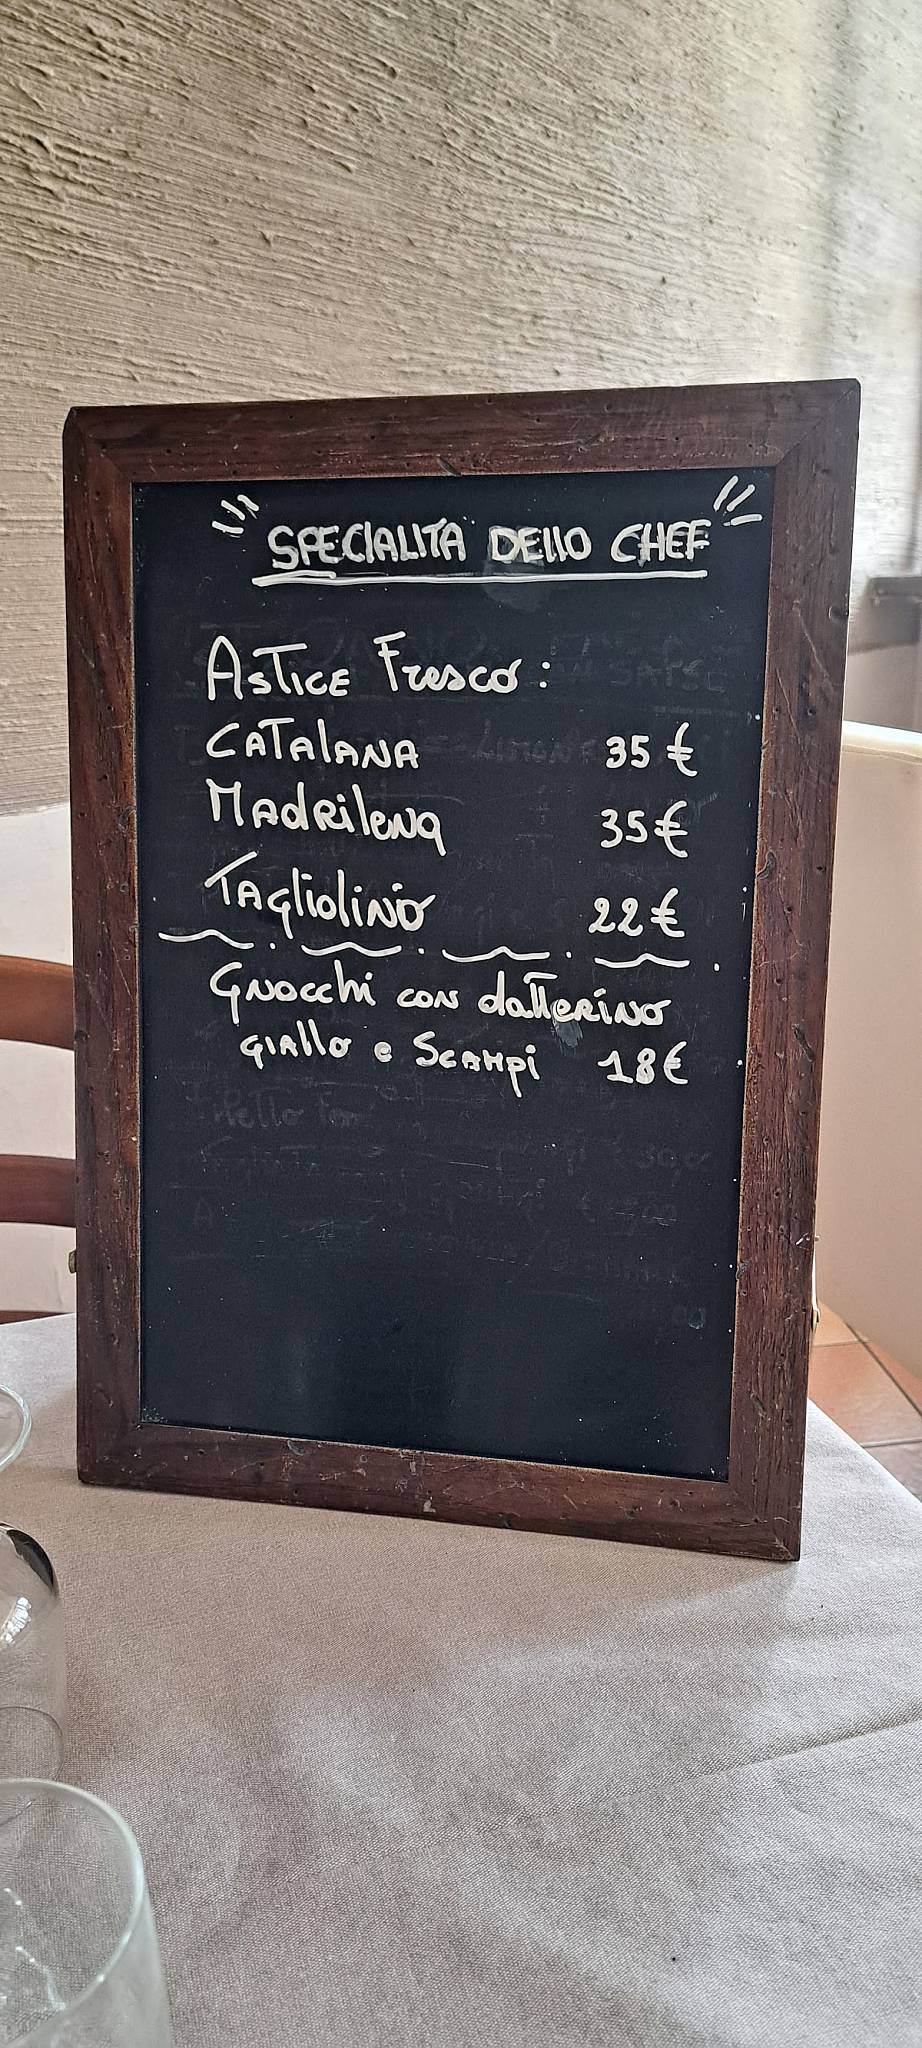 SPECIALITÀ DELLO CHEF
Astice Fresco:
CATALANA 35 €
Madrilena 35 €
Tagliolino 22 €
Gnocchi con datterino
giallo e Scampi 18 €